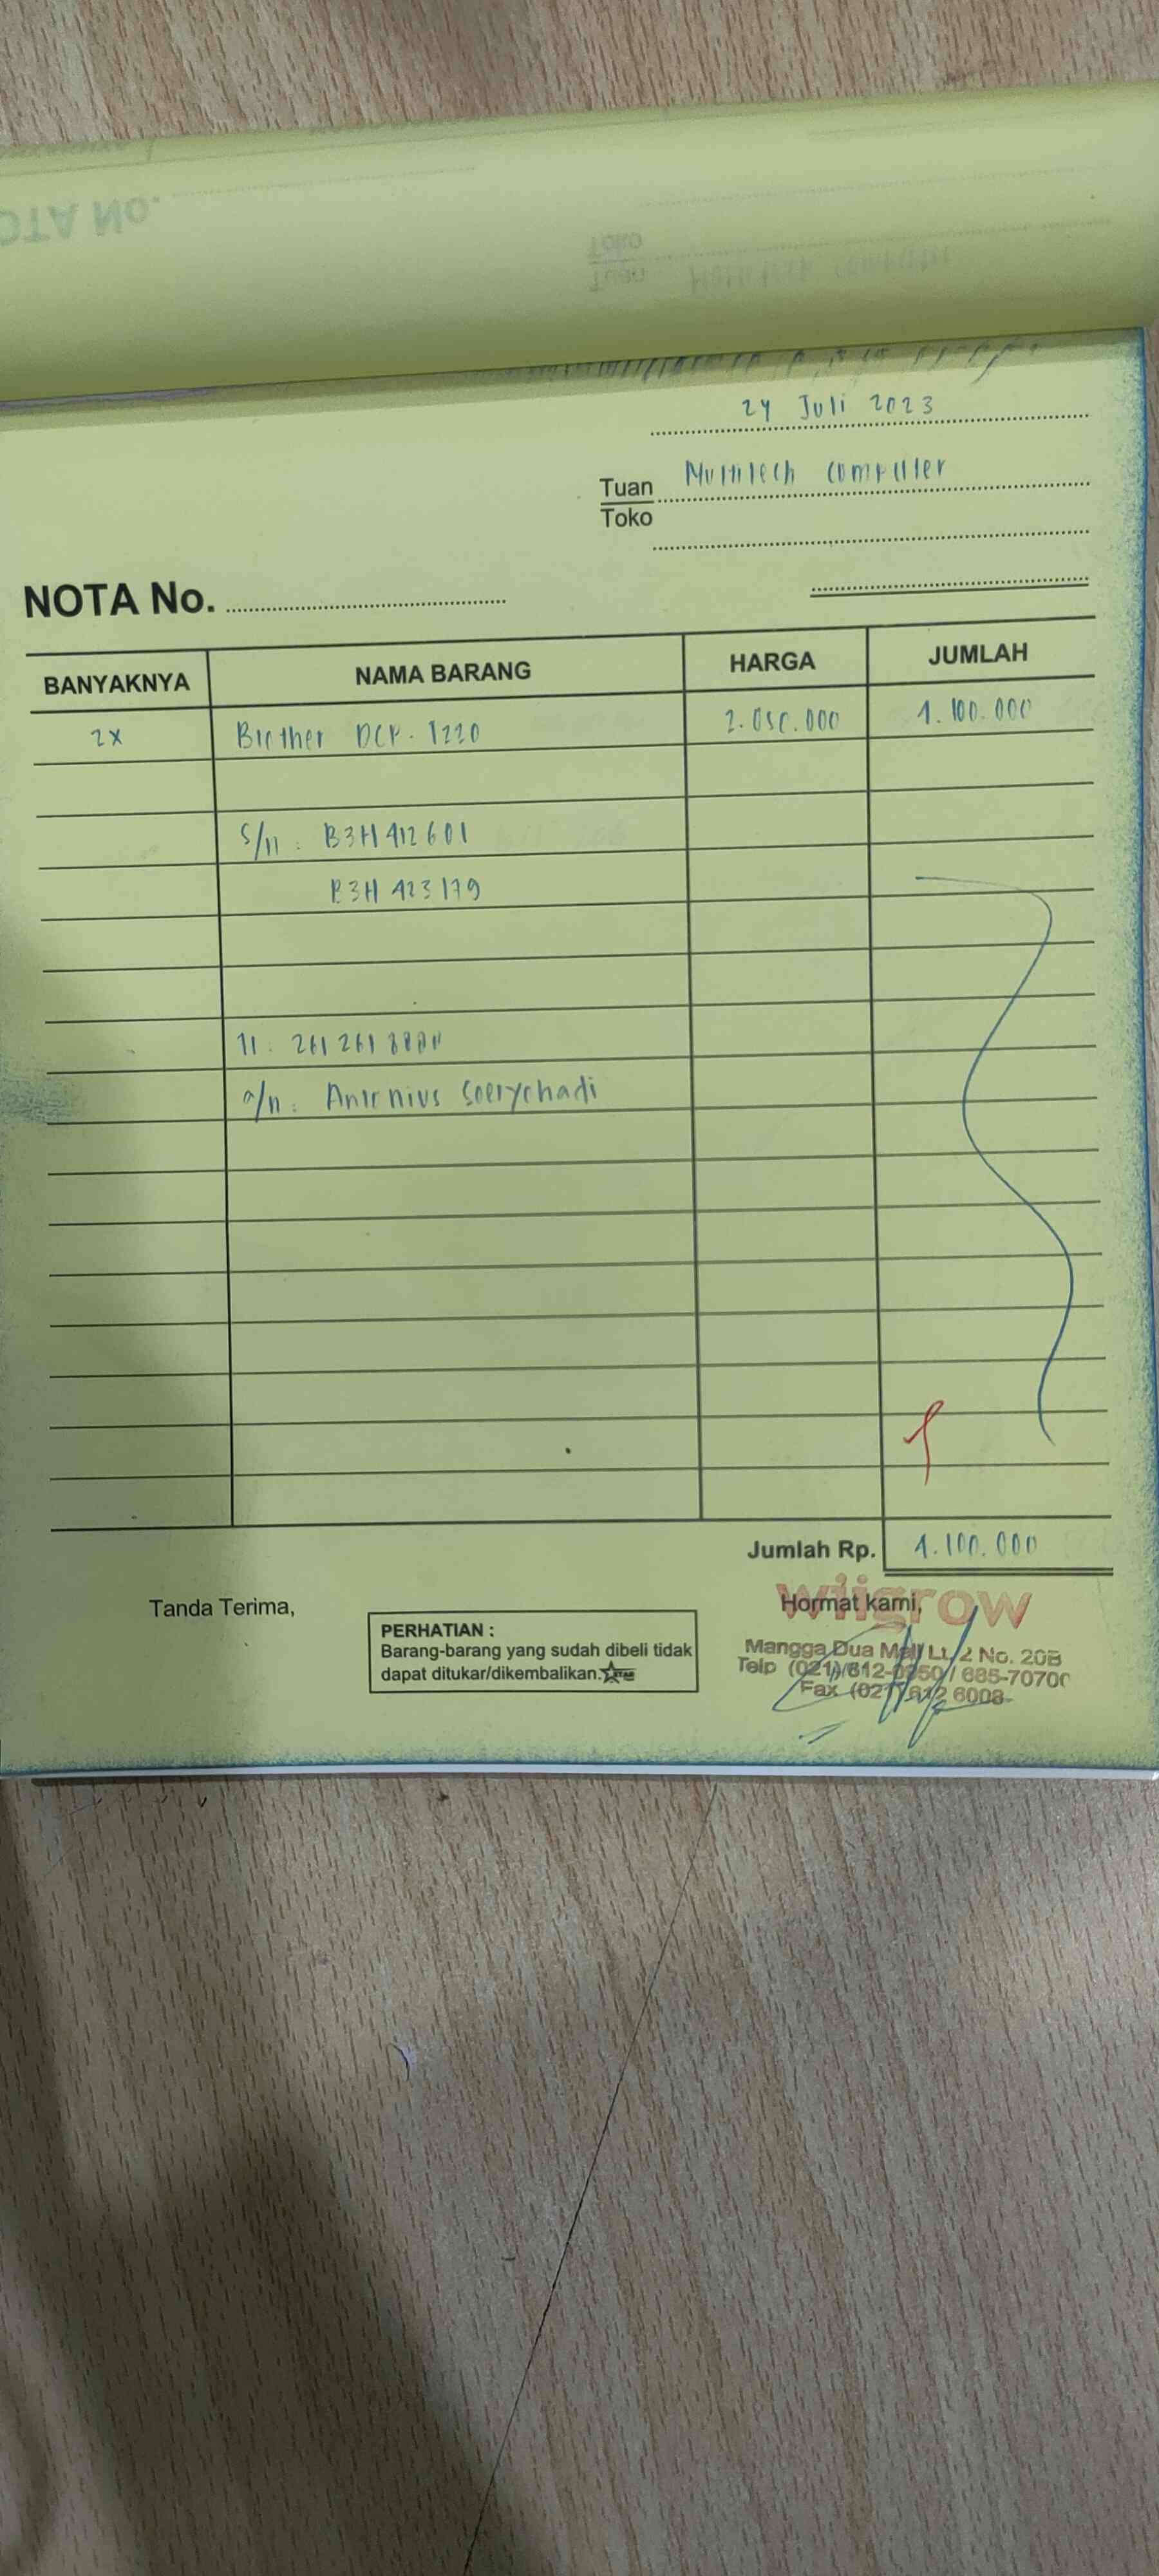 24 Juli 2023
Tuan Multitech Computer
Toko
NOTA No.
BANYAKNYA NAMA BARANG HARGA JUMLAH
2x Brother DCP-1220 2.050.000 4.100.000
S/N : B3H412601
B3H423179
a/n : Antonius Soerychadi
Jumlah Rp. 4.100.000
Tanda Terima,
PERHATIAN :
Barang-barang yang sudah dibeli tidak
dapat ditukar/dikembalikan.
Hormat kami,
wiigrow
Mangga Dua Mall Lt. 2 No. 20B
Telp (021) 612-0950 /
Fax (021) 612 6008